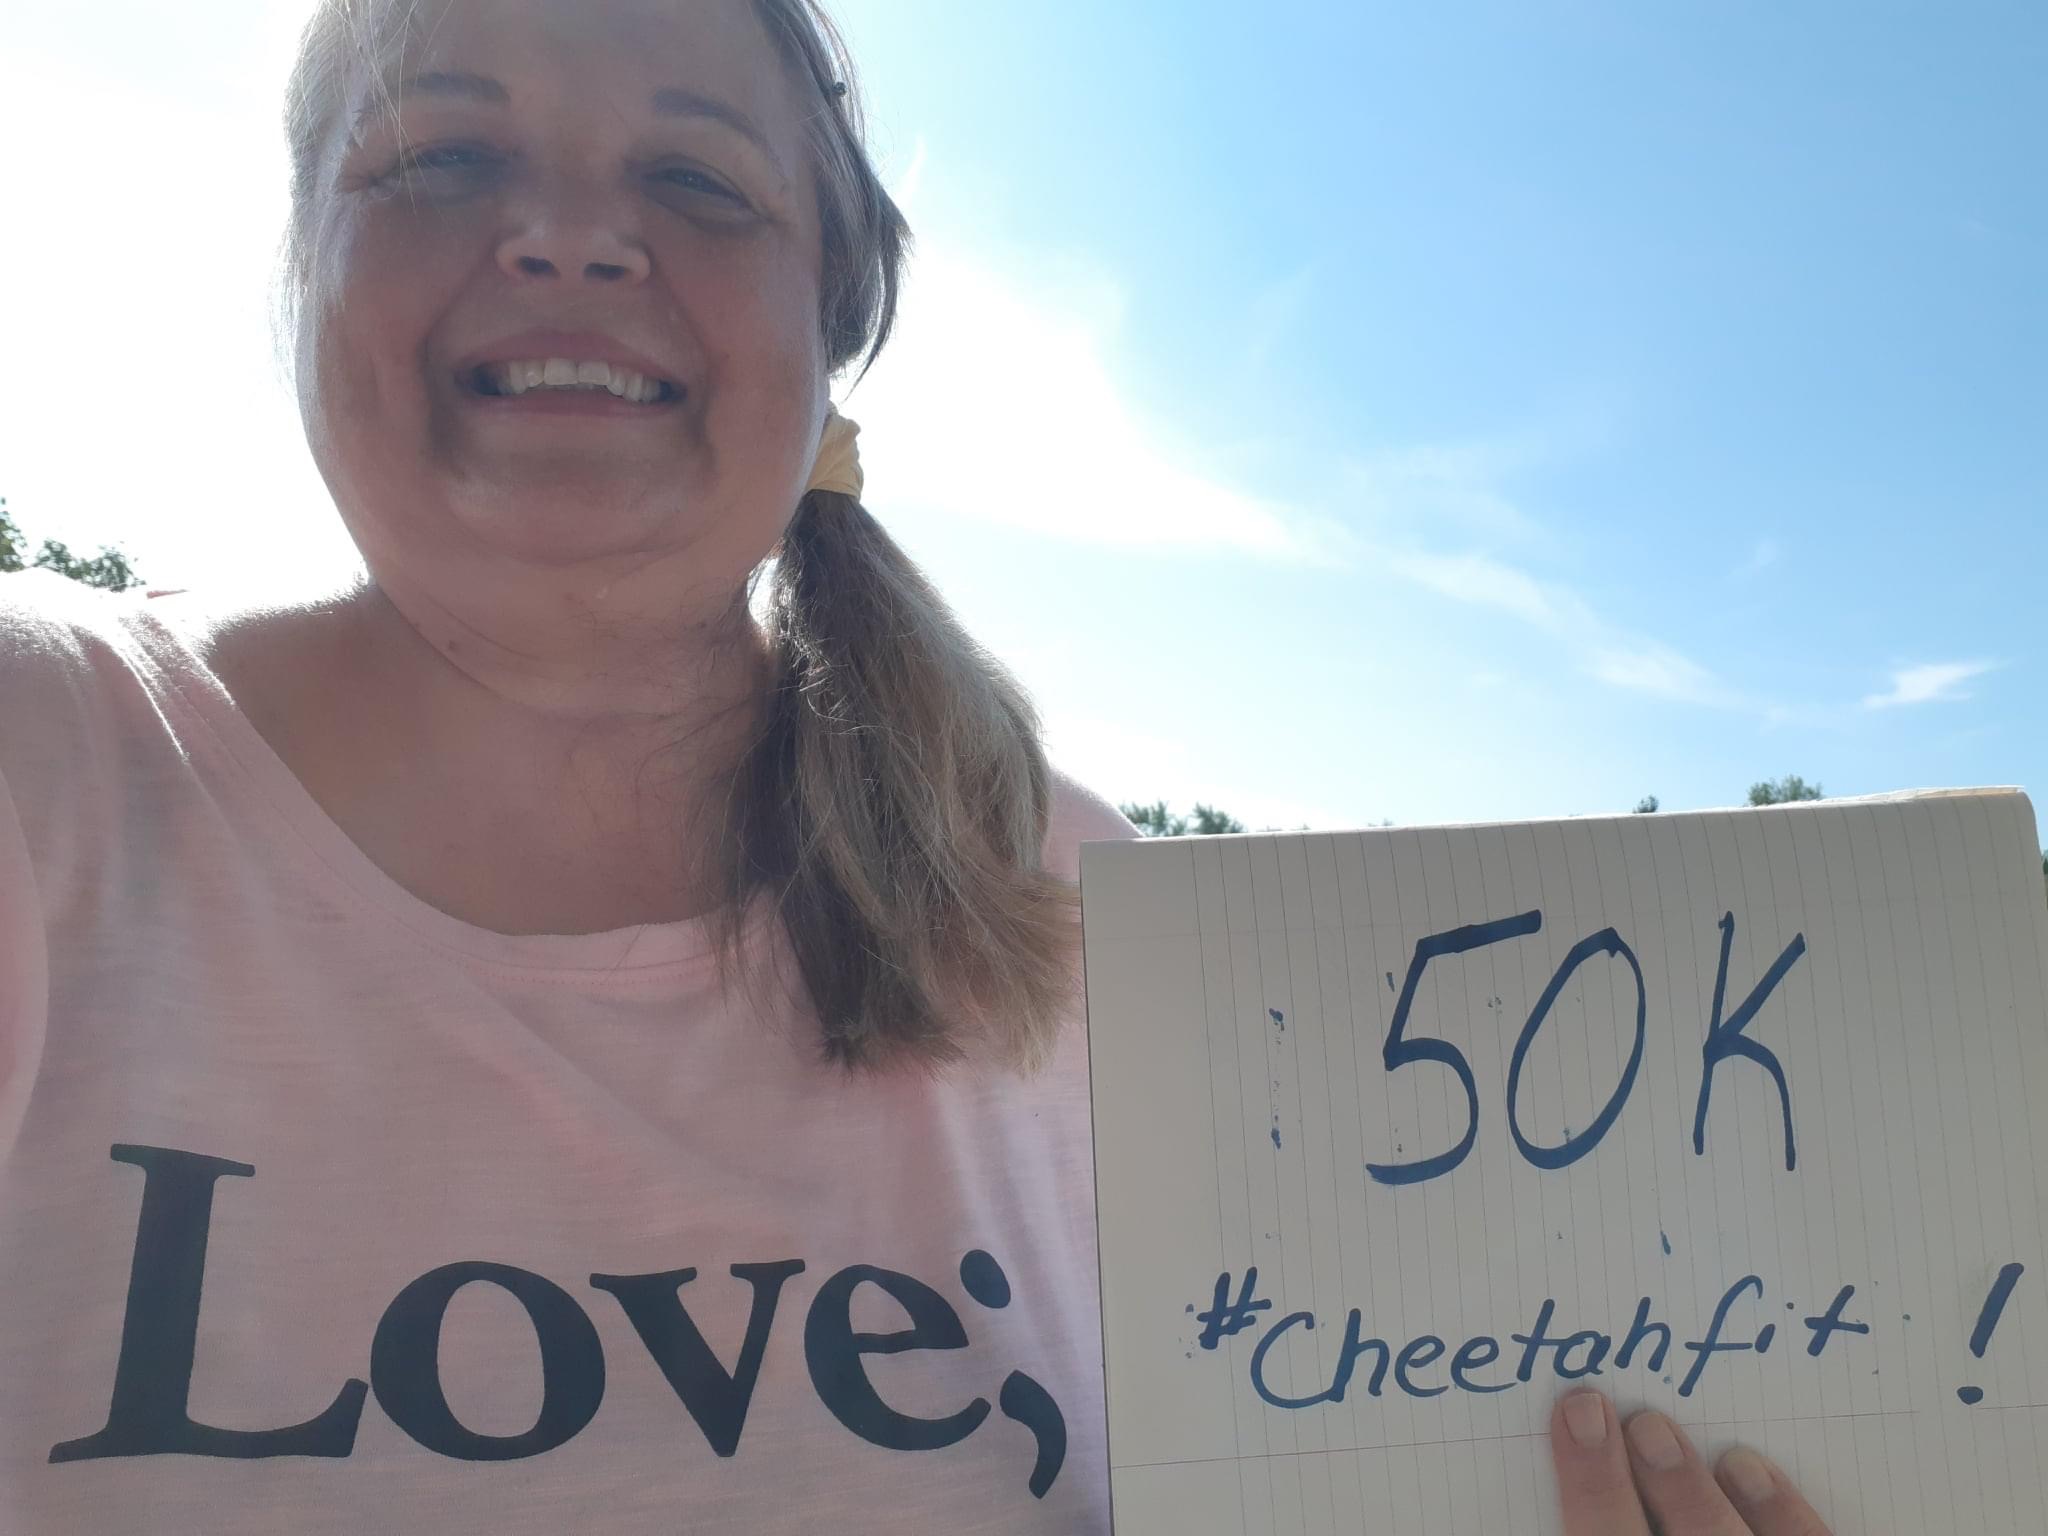 Love;
50K
#Cheetahfit!